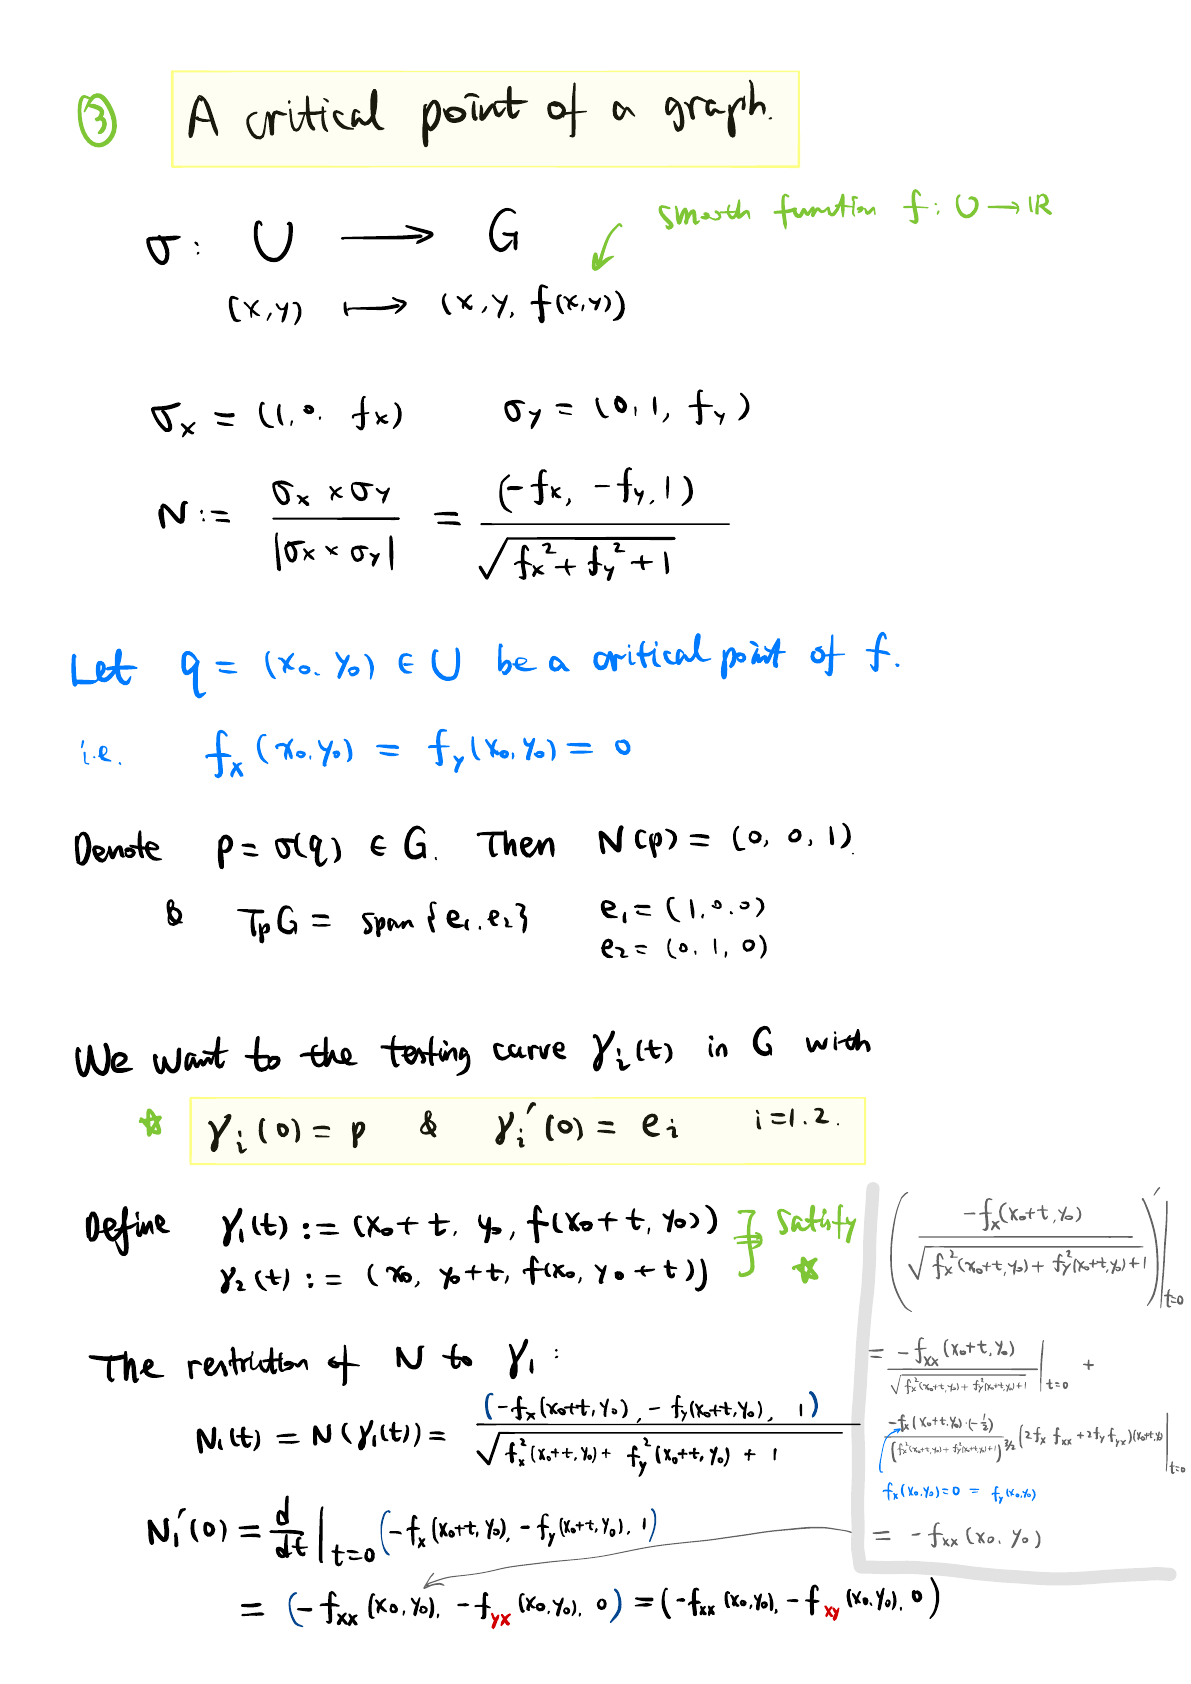 ③ A critical point of a graph.
smooth function f: U → ℝ
σ: U ⟶ G
(x,y) ⟼ (x,y, f(x,y))
σ_x = (1, 0, f_x)   σ_y = (0, 1, f_y)
N := \frac{σ_x × σ_y}{|σ_x × σ_y|} = \frac{(-f_x, -f_y, 1)}{\sqrt{f_x^2 + f_y^2 + 1}}
Let q = (x_0, y_0) ∈ U be a critical point of f.
i.e. f_x(x_0, y_0) = f_y(x_0, y_0) = 0
Denote p = σ(q) ∈ G. Then N(p) = (0, 0, 1).
& T_pG = span{e_1, e_2}   e_1 = (1, 0, 0)
e_2 = (0, 1, 0)
We want to the testing curve γ_i(t) in G with
☆ γ_i(0) = p & γ_i'(0) = e_i   i=1,2.
Define γ_1(t) := (x_0+t, y_0, f(x_0+t, y_0))
γ_2(t) := (x_0, y_0+t, f(x_0, y_0+t))
} satisfy ☆
The restriction of N to γ_1:
N_1(t) = N(γ_1(t)) = \frac{(-f_x(x_0+t, y_0), -f_y(x_0+t, y_0), 1)}{\sqrt{f_x^2(x_0+t, y_0) + f_y^2(x_0+t, y_0) + 1}}
N_1'(0) = \frac{d}{dt}|_{t=0} (-f_x(x_0+t, y_0), -f_y(x_0+t, y_0), 1)
= (-f_{xx}(x_0, y_0), -f_{yx}(x_0, y_0), 0) = (-f_{xx}(x_0, y_0), -f_{xy}(x_0, y_0), 0)
(\frac{-f_x(x_0+t, y_0)}{\sqrt{f_x^2(x_0+t, y_0) + f_y^2(x_0+t, y_0) + 1}})'|_{t=0}
= \frac{-f_{xx}(x_0+t, y_0)}{\sqrt{f_x^2(x_0+t, y_0) + f_y^2(x_0+t, y_0) + 1}}|_{t=0} +
\frac{-f_x(x_0+t, y_0)·(-\frac{1}{2})}{(f_x^2(x_0+t, y_0) + f_y^2(x_0+t, y_0) + 1)^{3/2}} (2f_x f_{xx} + 2f_y f_{yx})(x_0+t, y_0)|_{t=0}
f_x(x_0, y_0) = 0 = f_y(x_0, y_0)
= -f_{xx}(x_0, y_0)